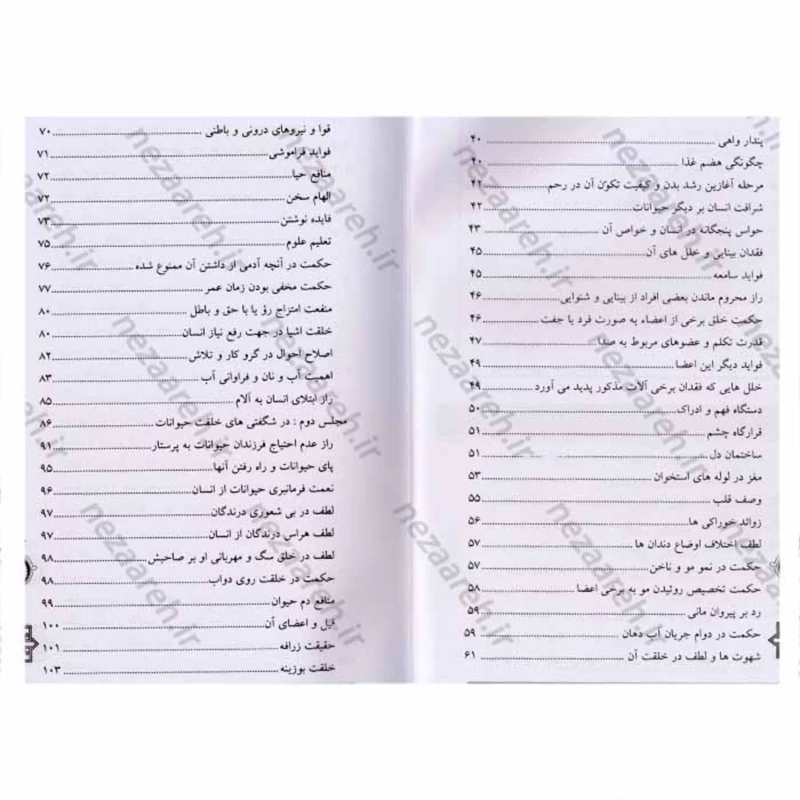 پندار واهی ۴۰
چگونگی هضم غذا ۴۰
مرحله آغازین رشد بدن و کیفیت تکوّن آن در رحم ۴۲
شرافت انسان بر دیگر حیوانات ۴۲
حواس پنجگانه در انسان و خواص آن ۴۳
فقدان بینایی و خلل های آن ۴۵
فواید سامعه ۴۵
راز محروم ماندن بعضی افراد از بینایی و شنوایی ۴۶
حکمت خلق برخی از اعضاء به صورت فرد یا جفت ۴۶
قدرت تکلم و عضوهای مربوط به صدا ۴۷
فواید دیگر این اعضا ۴۹
خلل هایی که فقدان برخی آلات مذکور پدید می آورد ۴۹
دستگاه فهم و ادراک ۵۰
قرارگاه چشم ۵۱
ساختمان دل ۵۱
مغز در لوله های استخوان ۵۳
وصف قلب ۵۵
زوائد خوراکی ها ۵۶
لطف اختلاف اوضاع دندان ها ۵۷
حکمت در نمو مو و ناخن ۵۷
حکمت تخصیص روئیدن مو به برخی اعضا ۵۸
رد بر پیروان مانی ۵۹
حکمت در دوام جریان آب دهان ۵۹
شهوت ها و لطف در خلقت آن ۶۱
قوا و نیروهای درونی و باطنی ۷۰
فواید فراموشی ۷۱
منافع حیا ۷۲
الهام سخن ۷۲
فایده نوشتن ۷۳
تعلیم علوم ۷۵
حکمت در آنچه آدمی از داشتن آن ممنوع شده ۷۶
حکمت مخفی بودن زمان عمر ۷۷
منفعت امتزاج رؤ یا با حق و باطل ۸۰
خلقت اشیا در جهت رفع نیاز انسان ۸۰
اصلاح احوال در گرو کار و تلاش ۸۲
اهمیت آب و نان و فراوانی آب ۸۳
راز ابتلای انسان به آلام ۸۵
مجلس دوم : در شگفتی های خلقت حیوانات ۸۶
راز عدم احتیاج فرزندان حیوانات به پرستار ۹۱
پای حیوانات و راه رفتن آنها ۹۵
نعمت فرمانبری حیوانات از انسان ۹۶
لطف در بی شعوری درندگان ۹۷
لطف هراس درندگان از انسان ۹۷
لطف در خلق سگ و مهربانی او بر صاحبش ۹۸
حکمت در خلقت روی دواب ۹۸
منافع دم حیوان ۹۹
فیل و اعضای آن ۱۰۰
حقیقت زرافه ۱۰۱
خلقت بوزینه ۱۰۳
nezaareh.ir
nezaareh.ir
nezaareh.ir
nezaareh.ir
nezaareh.ir
nezaareh.ir
nezaareh.ir
nezaareh.ir
nezaareh.ir